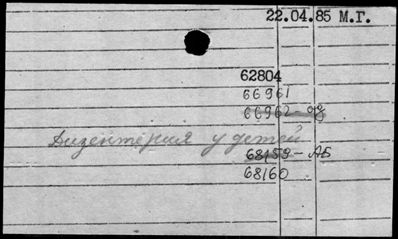 22.04.85 М.Г.
62804
66961
66962 - од
Дизентерия у детей
68159 - АБ
68160